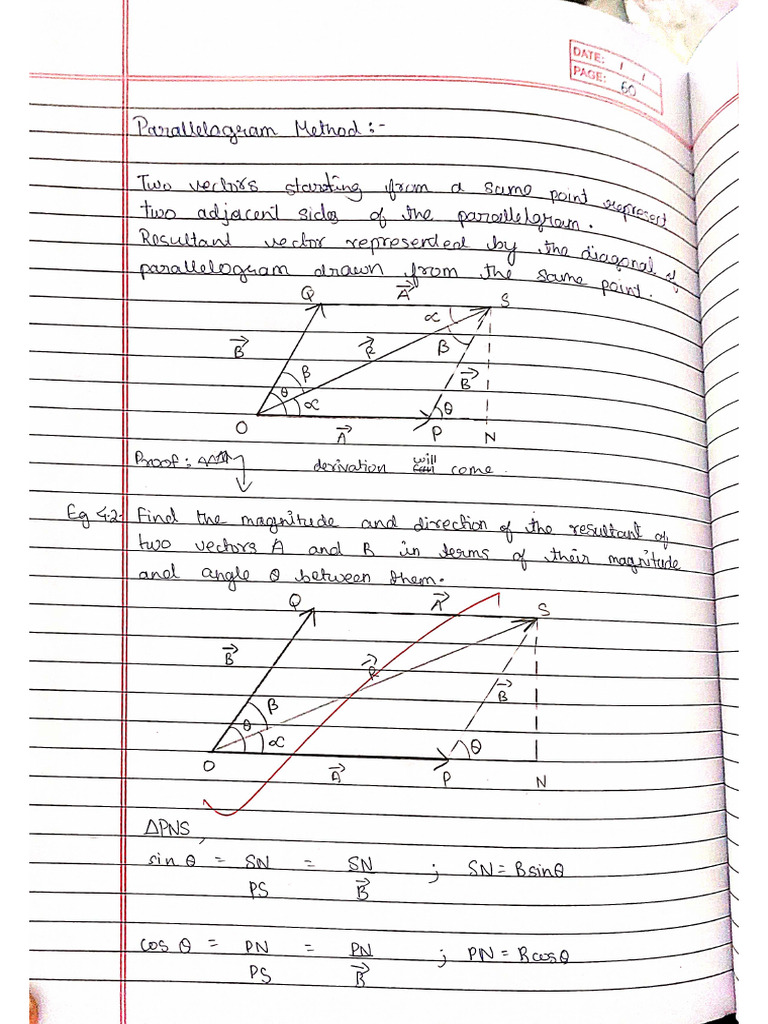 DATE: / /
PAGE: 60
Parallelogram Method :-
Two vectors starting from a same point represent
two adjacent sides of the parallelgram.
Resultant vector represented by the diagonal of
parallelogram drawn from the same point.
Q A⃗ S
α
B⃗ R⃗ β
β B⃗
θ α θ
O A⃗ P N
Proof : derivation will come.
Eg 4.2. Find the magnitude and direction of the resultant of
two vectors A and B in terms of their magnitude
and angle θ between them.
Q A⃗ S
B⃗ R⃗
β B⃗
θ α θ
O A⃗ P N
ΔPNS,
sin θ = SN = SN ; SN = B sin θ
PS B⃗
cos θ = PN = PN ; PN = B cos θ
PS B⃗